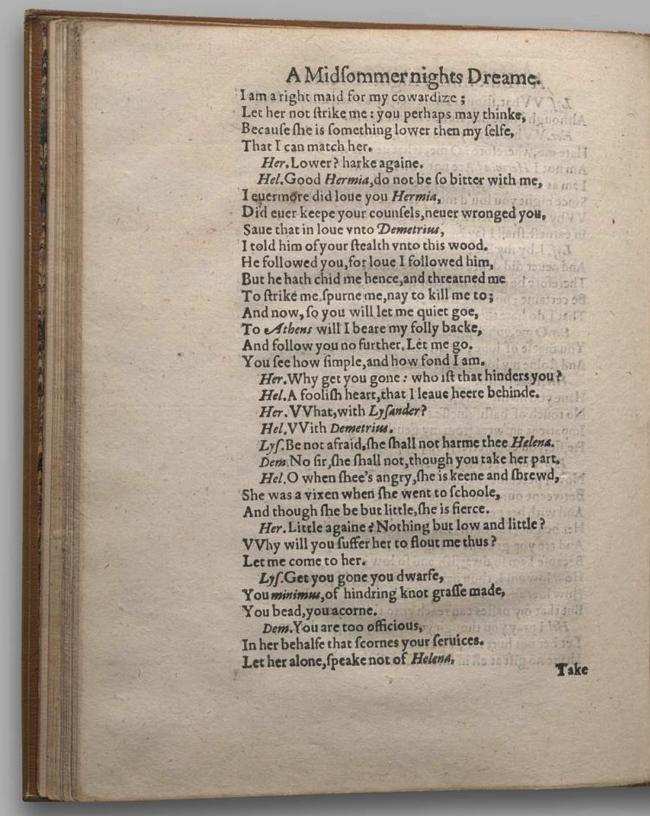 A Midſommer nights Dreame.
I am a right maid for my cowardize ;
Let her not ſtrike me : you perhaps may thinke,
Becauſe ſhe is ſomething lower then my ſelfe,
That I can match her.
Her. Lower? harke againe.
Hel. Good Hermia, do not be ſo bitter with me,
I euermore did loue you Hermia,
Did euer keepe your counſels, neuer wronged you,
Saue that in loue vnto Demetrius,
I told him of your ſtealth vnto this wood.
He followed you, for loue I followed him,
But he hath chid me hence, and threatned me
To ſtrike me, ſpurne me, nay to kill me to;
And now, ſo you will let me quiet goe,
To Athens will I beare my folly backe,
And follow you no further. Let me go.
You ſee how ſimple, and how fond I am.
Her. Why get you gone : who iſt that hinders you?
Hel. A fooliſh heart, that I leaue heere behinde.
Her. VVhat, with Lyſander?
Hel. VVith Demetrius.
Lyſ. Be not afraid, ſhe ſhall not harme thee Helena.
Dem. No ſir, ſhe ſhall not, though you take her part.
Hel. O when ſhee's angry, ſhe is keene and ſhrewd,
She was a vixen when ſhe went to ſchoole,
And though ſhe be but little, ſhe is fierce.
Her. Little againe? Nothing but low and little?
VVhy will you ſuffer her to flout me thus?
Let me come to her.
Lyſ. Get you gone you dwarfe,
You minimus, of hindring knot graſſe made,
You bead, you acorne.
Dem. You are too officious,
In her behalfe that ſcornes your ſeruices.
Let her alone, ſpeake not of Helena,
Take